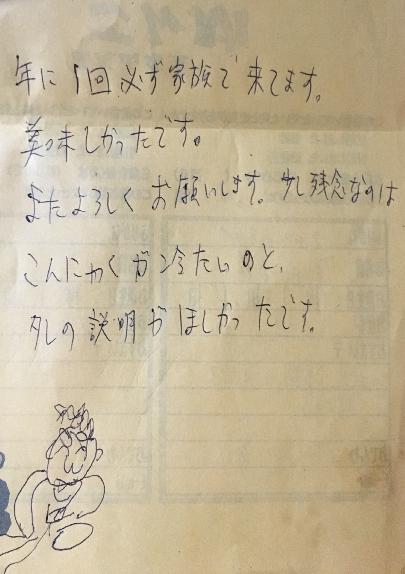 年に1回必ず家族で来てます。
美味しかったです。
またよろしくお願いします。少し残念なのは
こんにゃくが冷たいのと、
タレの説明がほしかったです。